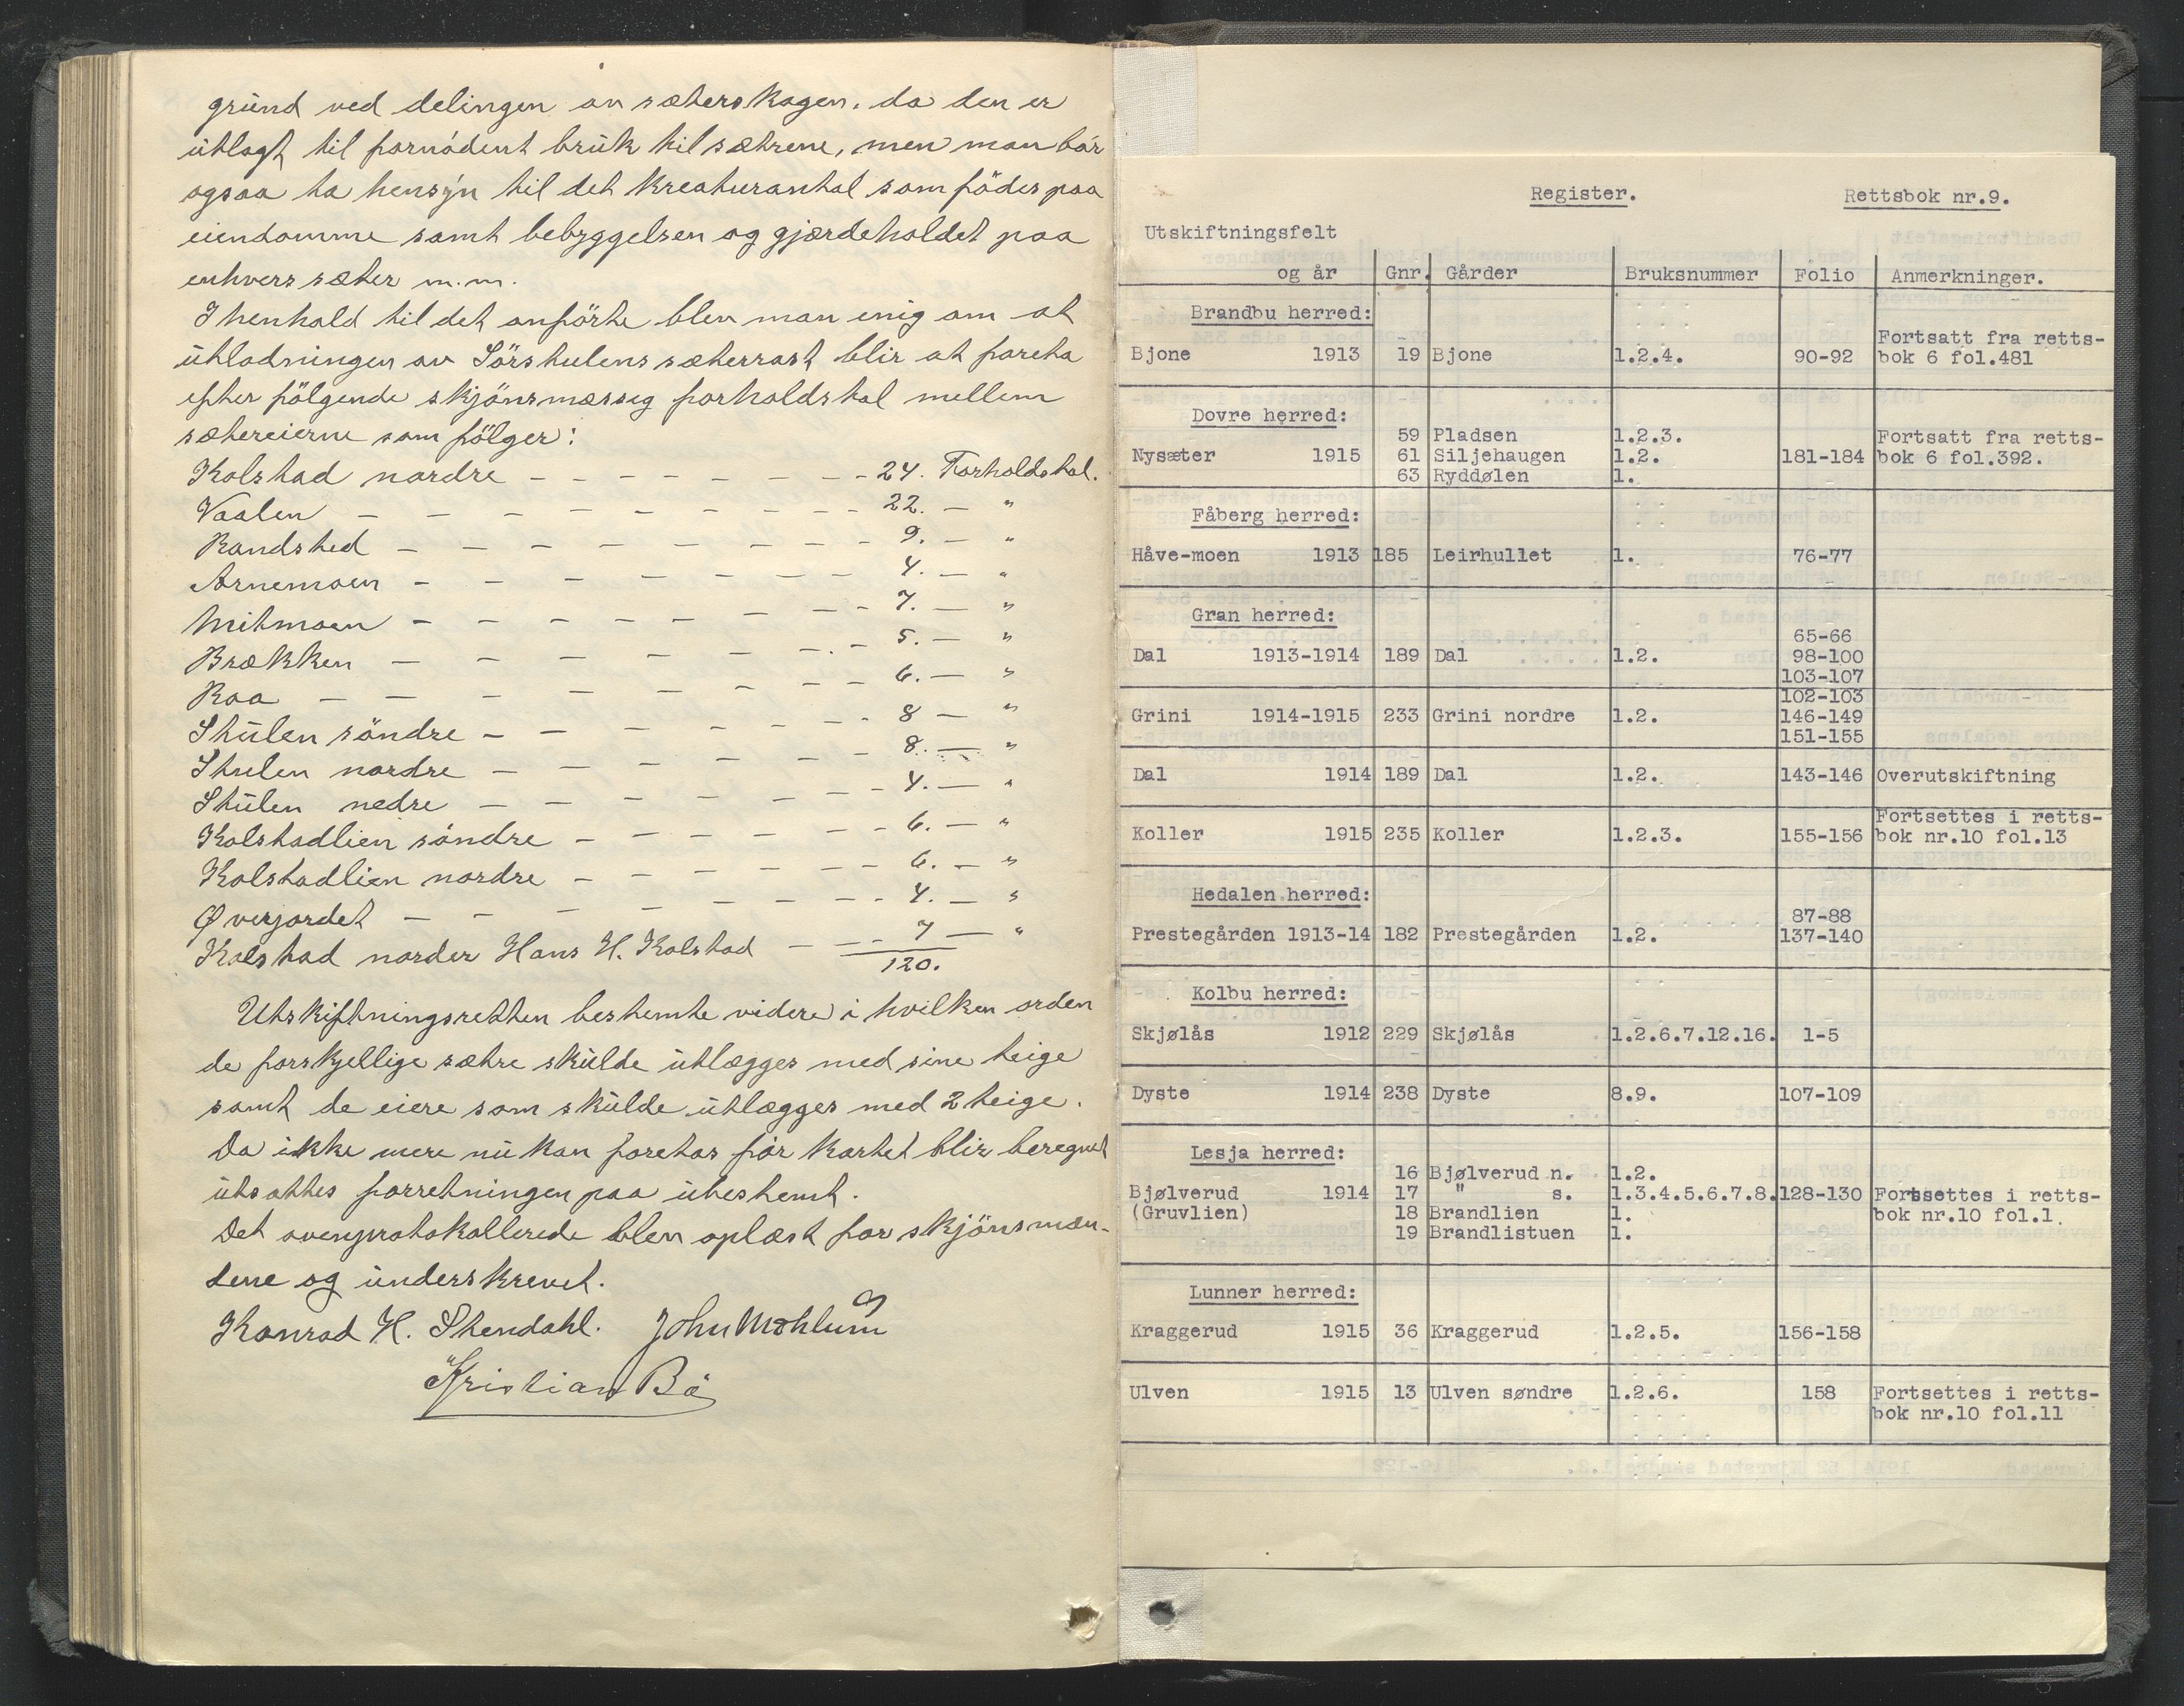 grund ved delingen av sæterskogen, da den er
utlagt til fornødent bruk til sætrene, men man bör
ogsaa ta hensyn til det kreaturantal som födes paa
eiendomme samt bebyggelsen og gjærdeholdet paa
enhvers sæter m.m.
I henhold til det anförte blev man enig om at
utlodningen av Sörstulens sæterrast blir at foreta
efter fölgende skjönsmæssig forholdstal mellem
sætereierne som fölger:
Kolstad nordre - - - - - - - - 24. Forholdstal.
Vaalen - - - - - - - - - 22. — "
Randsted - - - - - - - - - 9. — "
Arnemoen - - - - - - - - 4. — "
Mitmoen - - - - - - - - 7. — "
Brækken - - - - - - - - 5. — "
Raa - - - - - - - - 6. — "
Stulen söndre - - - - - - - 8 — "
Stulen nordre - - - - - - 8. — "
Stulen nedre - - - - - - - 4. — "
Kolstadlien söndre - - - - - - 6. — "
Kolstadlien nordre - - - - - - 6. — "
Øverjordet - - - - - - - - 4. — "
Kolstad norder Hans H. Kolstad - - - 7 — "
120.
Utskiftningsretten bestemte videre i hvilken orden
de forskjellige sætre skulde utlægges med sine teige
samt de eiere som skulde utlægges med 2 teige.
Da ikke mere nu kan foretas før kartet blir beregnet
utsattes forretningen paa ubestemt.
Det ovenprotokollerede blev oplæst for skjönsmæn-
dene og underskrevet.
Konrad H. Stendahl. John Mæhlum
Kristian Bö
Register. Rettsbok nr.9.
Utskiftningsfelt
og år Gnr. Gårder Bruksnummer Folio Anmerkninger.
Brandbu herred:
Fortsatt fra retts-
Bjone 1913 19 Bjone 1.2.4. 90-92 bok 6 fol.481
Dovre herred:
59 Pladsen 1.2.3. Fortsatt fra retts-
Nysæter 1915 61 Siljehaugen 1.2. 181-184 bok 6 fol.392.
63 Ryddølen 1.
Fåberg herred:
Håve-moen 1913 185 Leirhullet 1. 76-77
Gran herred:
65-66
Dal 1913-1914 189 Dal 1.2. 98-100
103-107
102-103
Grini 1914-1915 233 Grini nordre 1.2. 146-149
151-155
Dal 1914 189 Dal 1.2. 143-146 Overutskiftning
Fortsettes i retts-
Koller 1915 235 Koller 1.2.3. 155-156 bok nr.10 fol.13
Hedalen herred:
87-88
Prestegården 1913-14 182 Prestegården 1.2. 137-140
Kolbu herred:
Skjølås 1912 229 Skjølås 1.2.6.7.12.16. 1-5
Dyste 1914 238 Dyste 8.9. 107-109
Lesja herred:
16 Bjølverud n. 1.2.
Bjølverud 1914 17 " s. 1.3.4.5.6.7.8. 128-130 Fortsettes i retts-
(Gruvlien) 18 Brandlien 1. bok nr.10 fol.1.
19 Brandlistuen 1.
Lunner herred:
Kraggerud 1915 36 Kraggerud 1.2.5. 156-158
Ulven 1915 13 Ulven søndre 1.2.6. 158 Fortsettes i retts-
bok nr.10 fol.11